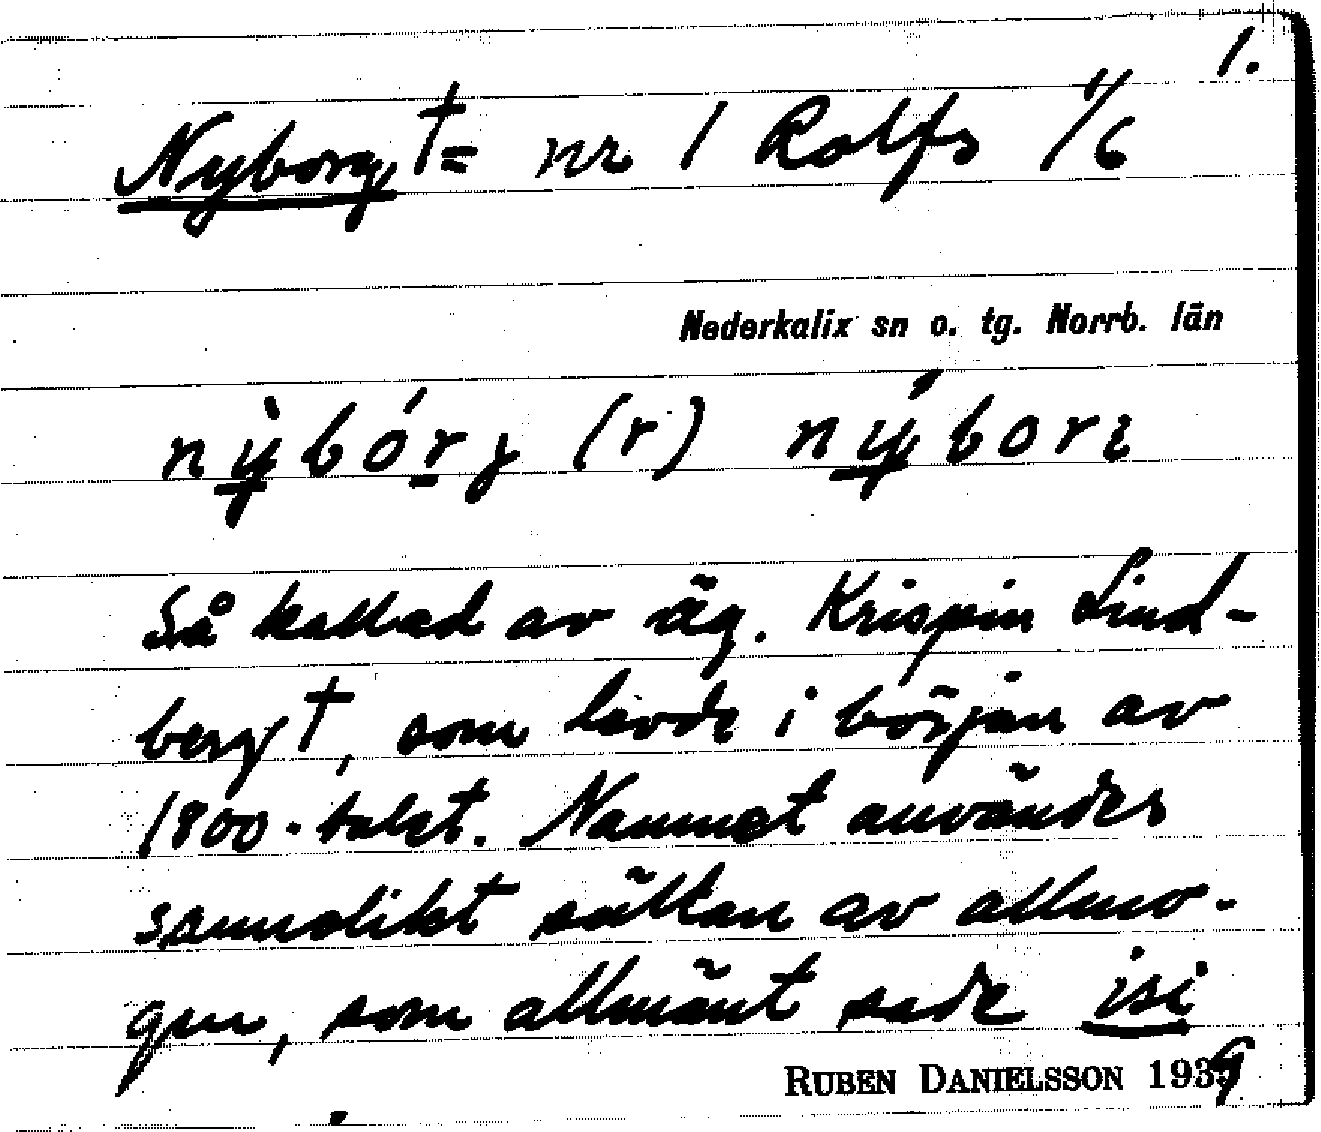 1.
Nyborg † = nr 1 Rolfs 1/6
Nederkalix sn o. tg. Norrb. län
nỳbórg (r) nýbori
Så kallad av äg. Krispin Lind-
berg †, som levde i början av
1800-talet. Namnet användes
sannolikt sällan av allmo-
gen, som allmänt sade isi
RUBEN DANIELSSON 1939